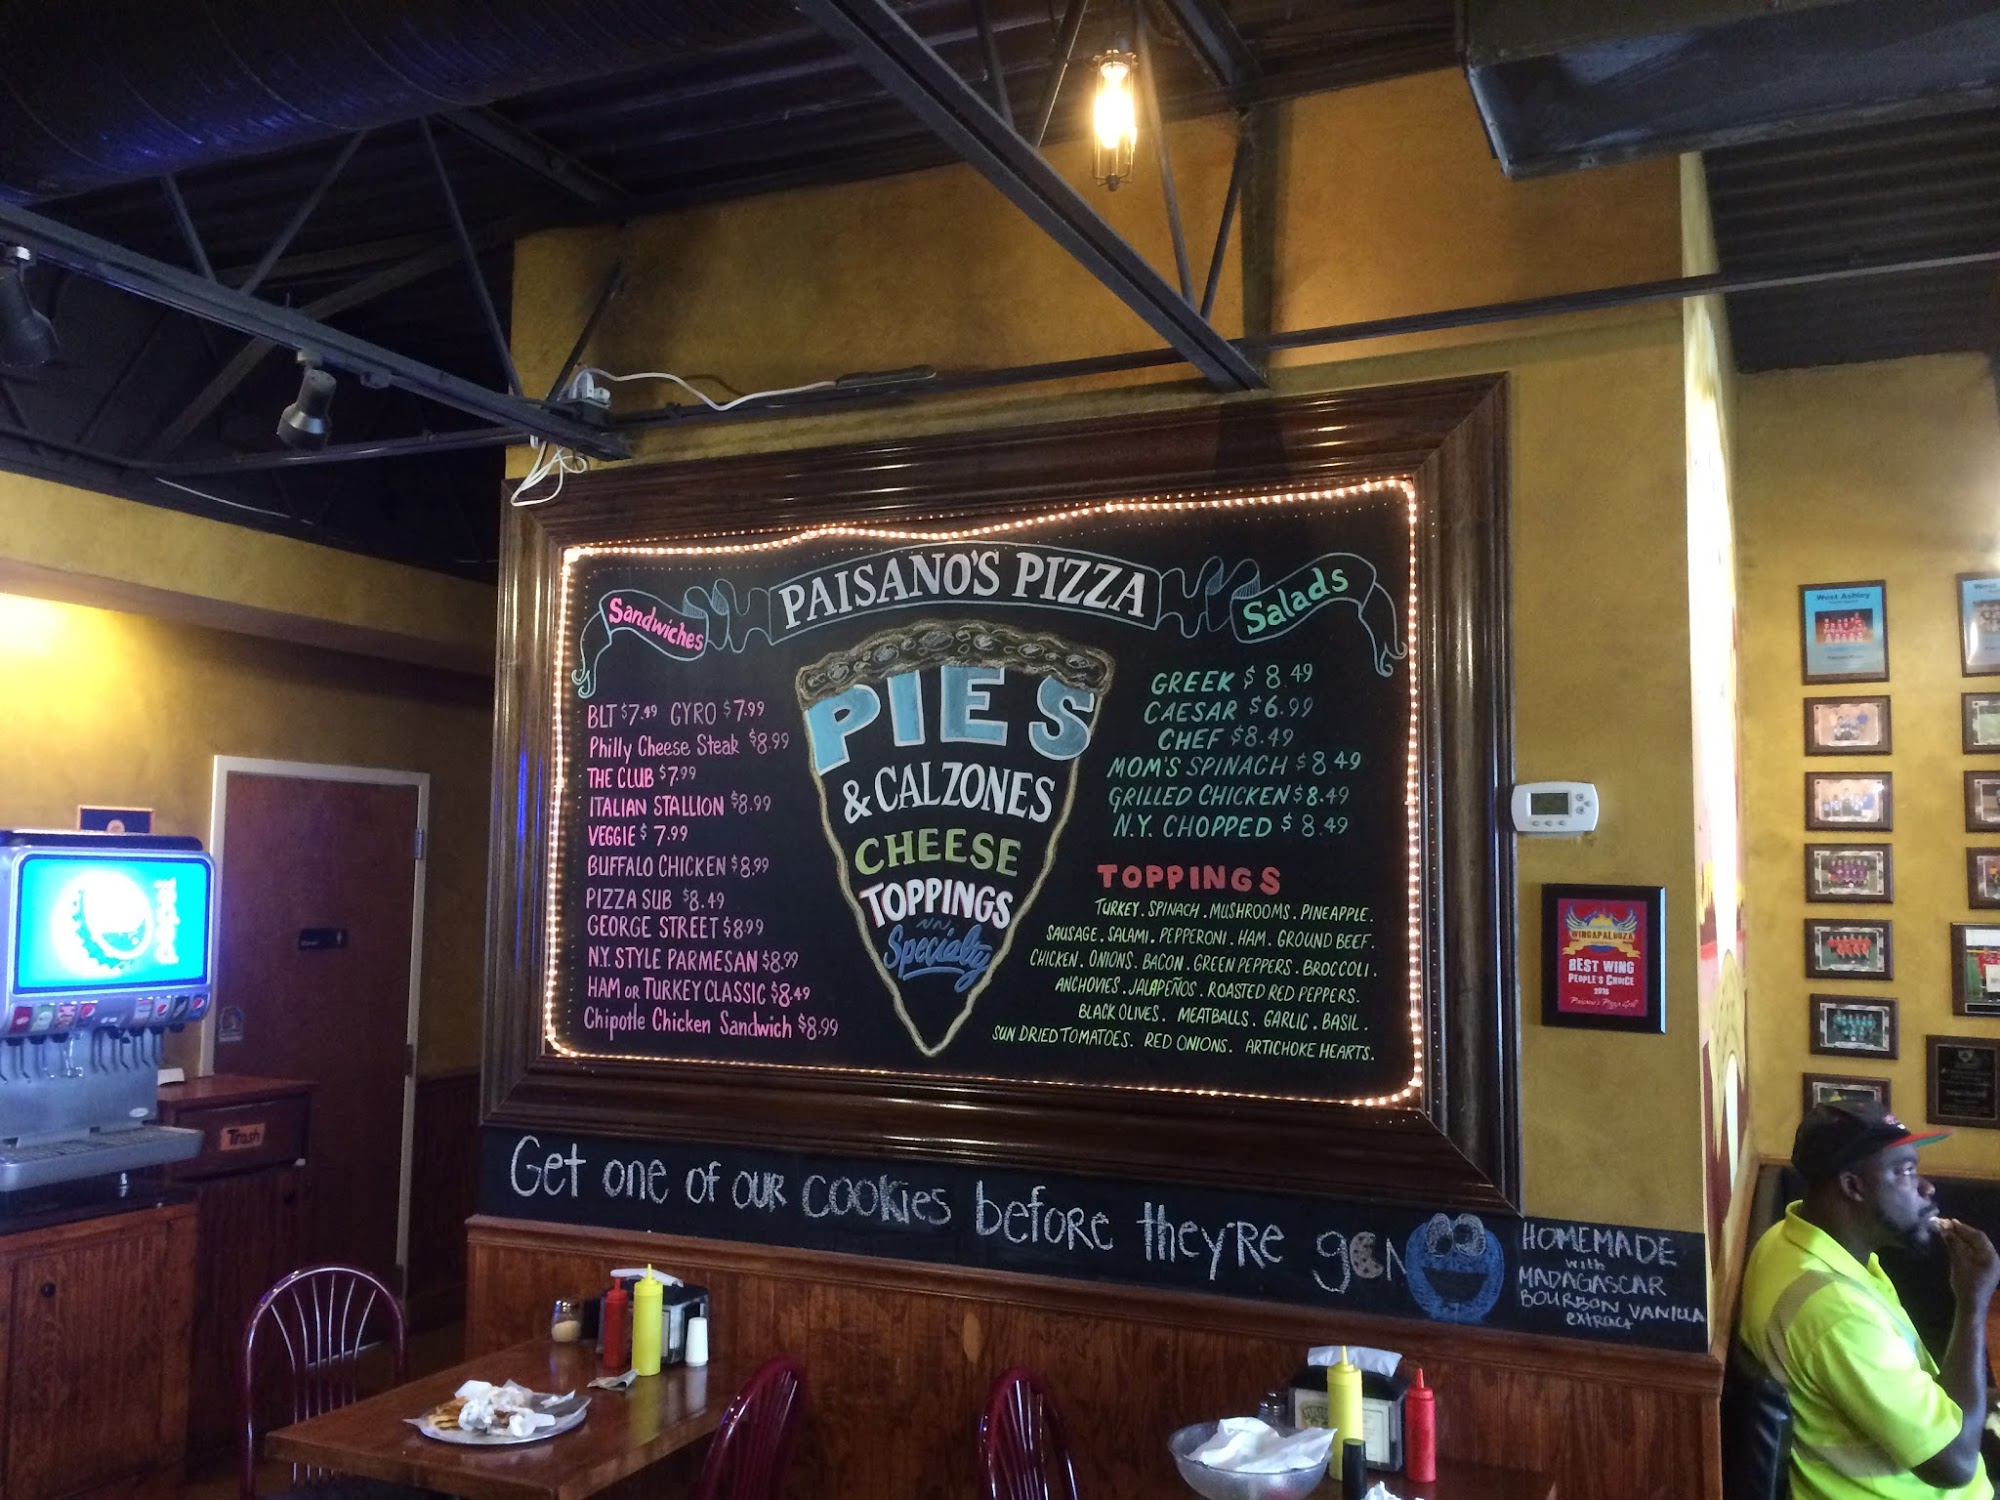 PAISANO'S PIZZA
Sandwiches
BLT $7.49 GYRO $7.99
Philly Cheese Steak $8.99
THE CLUB $7.99
ITALIAN STALLION $8.99
VEGGIE $7.99
BUFFALO CHICKEN $8.99
PIZZA SUB $8.49
GEORGE STREET $8.99
N.Y. STYLE PARMESAN $8.99
HAM OR TURKEY CLASSIC $8.49
Chipotle Chicken Sandwich $8.99
PIES
& CALZONES
CHEESE
TOPPINGS
Specialty
Salads
GREEK $8.49
CAESAR $6.99
CHEF $8.49
MOM'S SPINACH $8.49
GRILLED CHICKEN $8.49
N.Y. CHOPPED $8.49
TOPPINGS
TURKEY. SPINACH. MUSHROOMS. PINEAPPLE.
SAUSAGE. SALAMI. PEPPERONI. HAM. GROUND BEEF.
CHICKEN. ONIONS. BACON. GREEN PEPPERS. BROCCOLI.
ANCHOVIES. JALAPEÑOS. ROASTED RED PEPPERS.
BLACK OLIVES. MEATBALLS. GARLIC. BASIL.
SUN DRIED TOMATOES. RED ONIONS. ARTICHOKE HEARTS.
Get one of our cookies before they're gon
HOMEMADE
with
MADAGASCAR
BOURBON VANILLA
extract
WINGAPALOOZA
BEST WING
PEOPLE'S CHOICE
2016
Paisano's Pizza Grill
West Ashley
pepsi
Trash